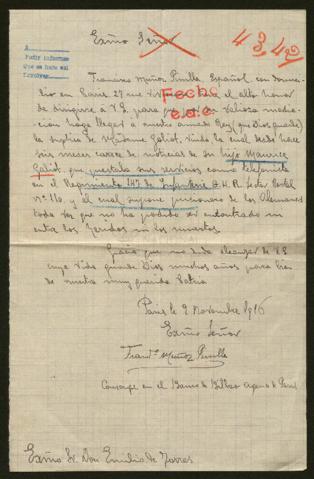 Exmo Señor
4342
A
Pedir informes
Que se hace así
Devolver
Francisco Muñoz Pinilla, Español, con domicilio
en Paris 27 rue
Fecha
e.d.c.
el alto honor
de dirigirse á V.E. para que por su valiosa mediacion
haga llegar á nuestro amado Rey (que Dios guarde)
la suplica de Madame Galiot, viuda la cual desde hace
seis meses carece de noticias de su hijo Maurice
Galiot que prestaba sus servicios como telefonista
en el Regimiento 147 de Infanteria C.H.R. Sector Postal
Nº 110, y al cual supone prisionero de los Alemanes
toda vez que no ha podido ser encontrado ni
entre los heridos ni los muertos.
Gracia que no duda alcanzar de V.E.
cuya vida guarde Dios muchos años para bien
de nuestra muy querida Patria
Paris le 2 Noviembre 1916
Exmo Señor
Francº Muñoz Pinilla
Conserje en el Banco de Bilbao Agencia de Paris
Exmo Sr. Don Emilio de Torres